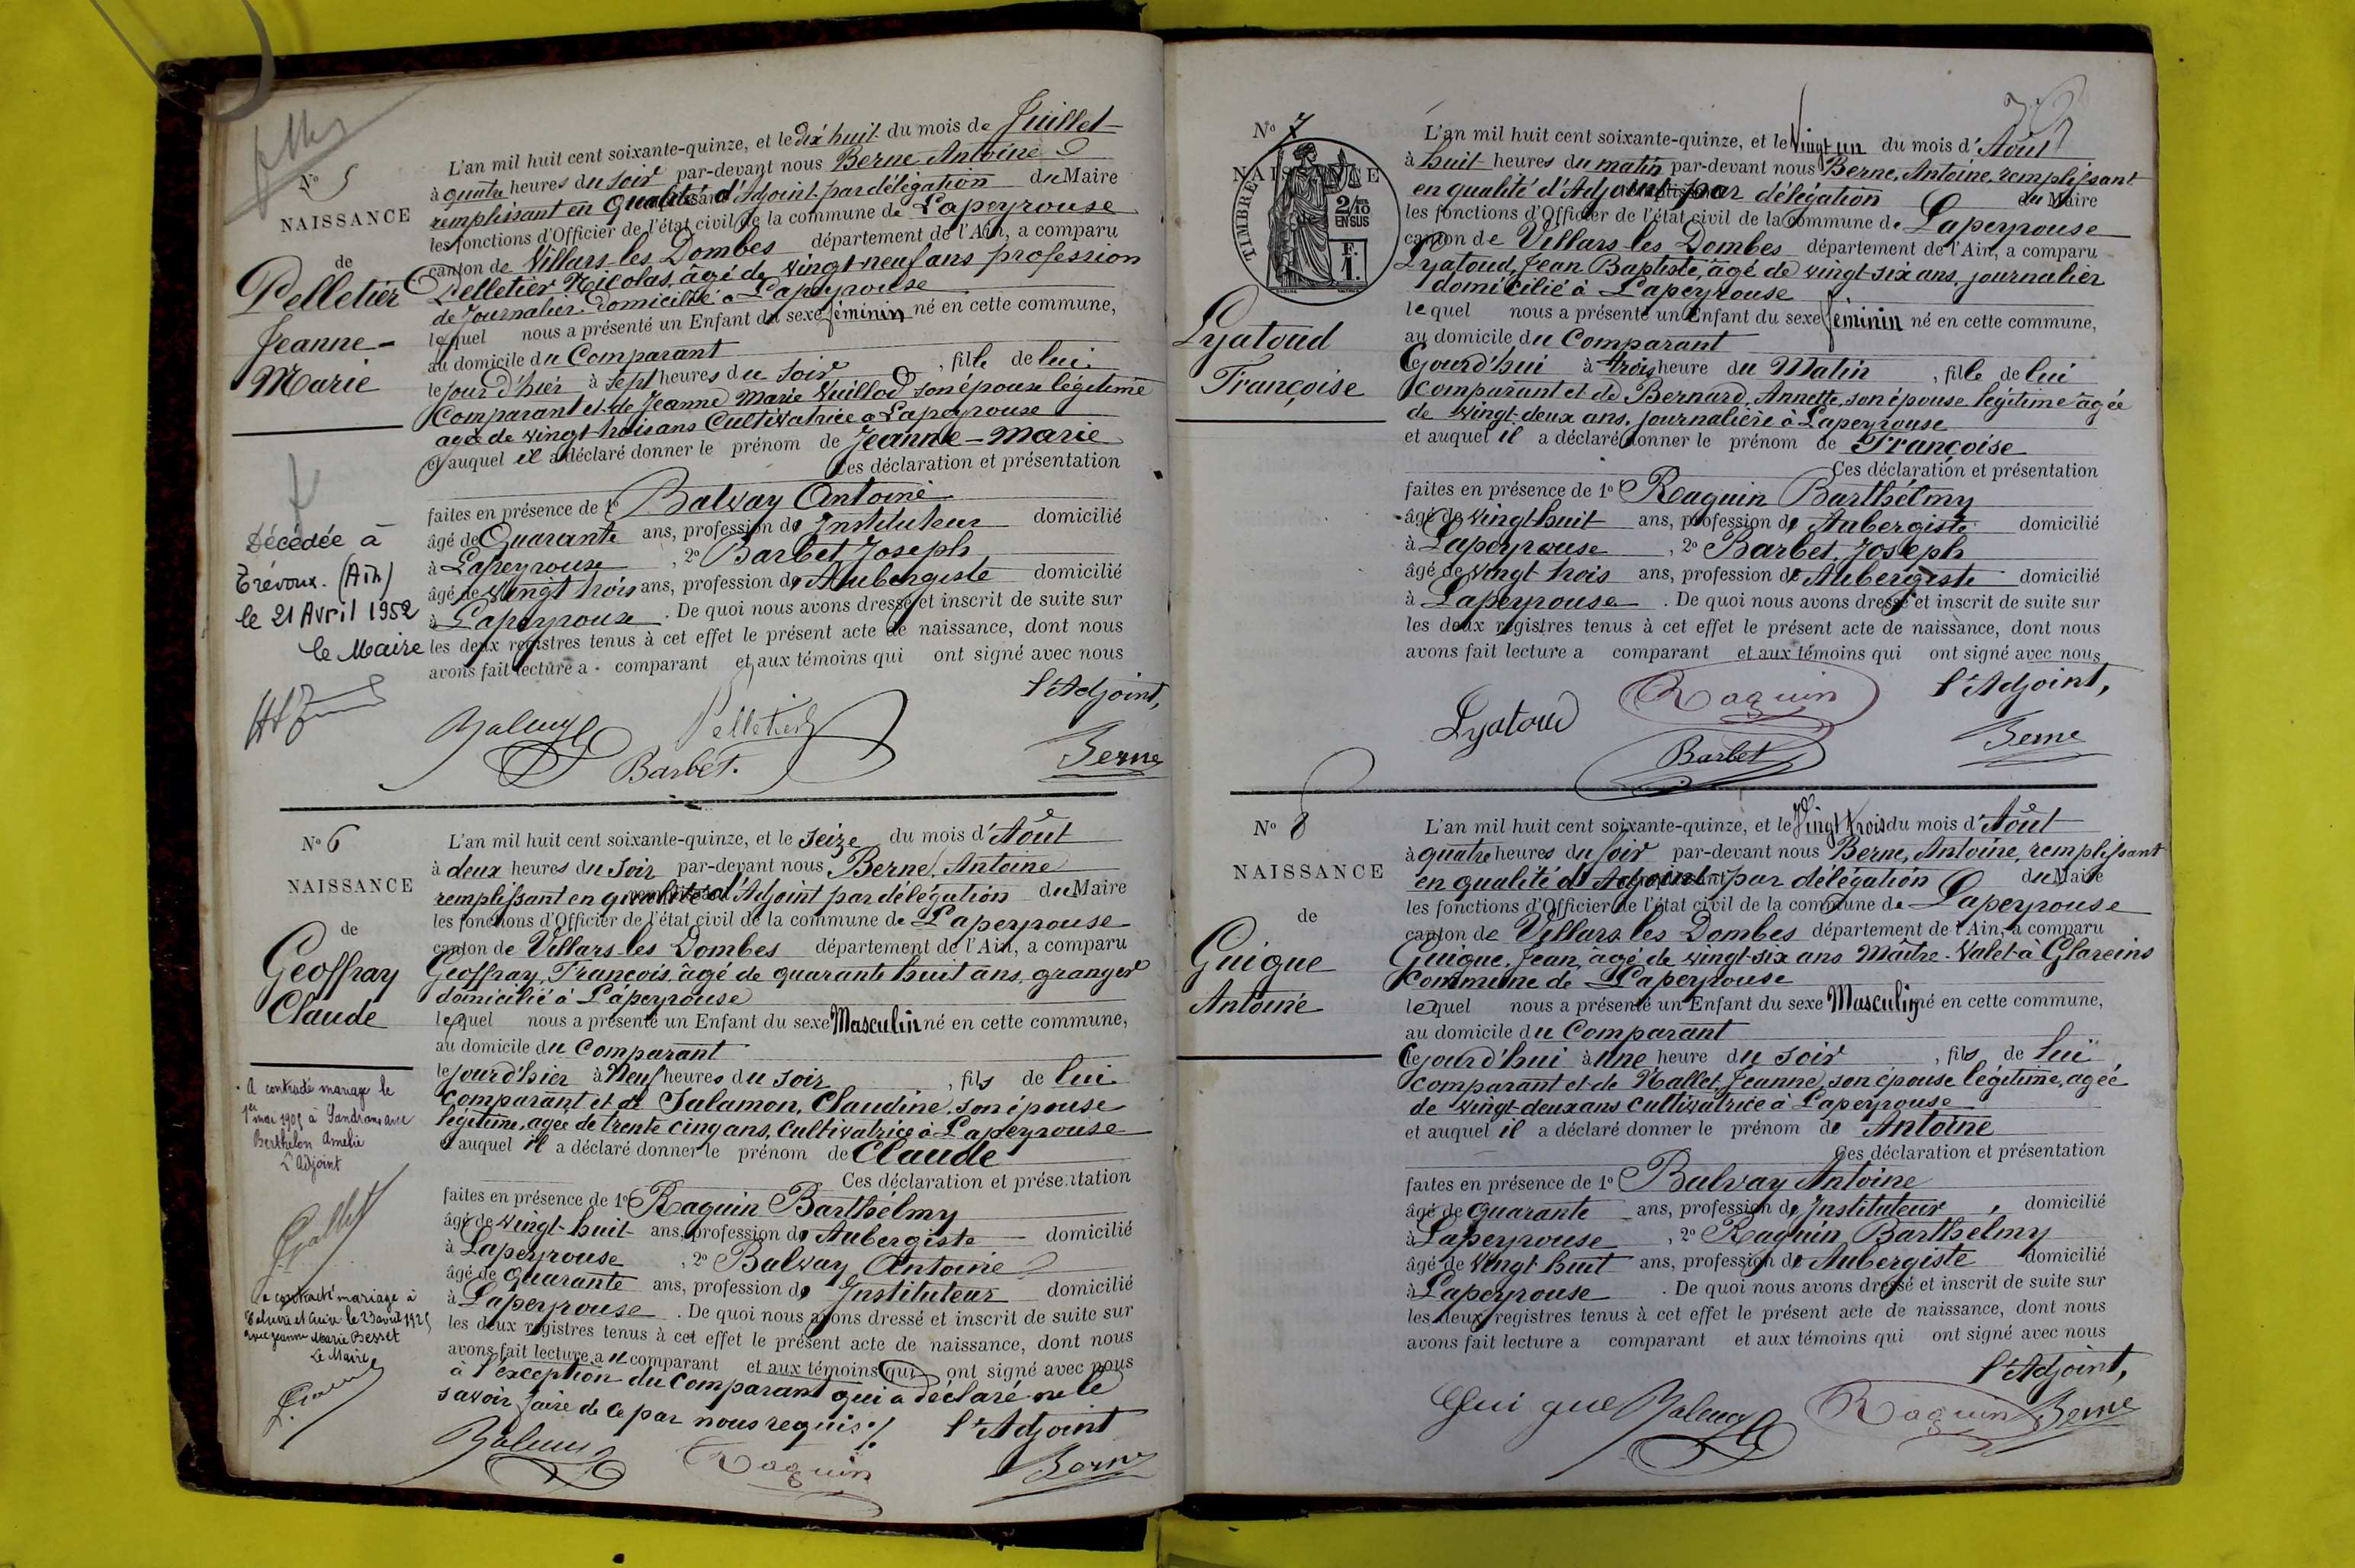 N° 5
NAISSANCE
de
Pelletier
Jeanne-
Marie
Décédée à
Trévoux. (Ain)
le 21 Avril 1952
le Maire
L'an mil huit cent soixante-quinze, et le dix huit du mois de Juillet
à quatre heures du soir par-devant nous Berne Antoine
remplissant en qualité d'Adjoint par délégation du Maire
les fonctions d'Officier de l'état civil de la commune de Lapeyrouse
canton de Villars les Dombes département de l'Ain, a comparu
Pelletier Nicolas, âgé de vingt-neuf ans profession
de Journalier. Domicilié à Lapeyrouse
lequel nous a présenté un Enfant du sexe féminin né en cette commune,
au domicile du Comparant
le jour d'hier à sept heures du soir, fille de lui
Comparant et de Jeanne Marie Vuillod son épouse légitime
agée de vingt trois ans Cultivatrice a Lapeyrouse
et auquel il a déclaré donner le prénom de Jeanne-Marie
Ces déclaration et présentation
faites en présence de 1° Balvay Antoine
âgé de Quarante ans, profession de Instituteur domicilié
à Lapeyrouse, 2° Barbet Joseph
âgé de vingt trois ans, profession de Aubergiste domicilié
à Lapeyrouse. De quoi nous avons dressé et inscrit de suite sur
les deux registres tenus à cet effet le présent acte de naissance, dont nous
avons fait lecture a comparant et aux témoins qui ont signé avec nous
l'Adjoint,
Balvay Pelletier
Barbet. Berne
N° 6
NAISSANCE
de
Geoffray
Claude
A contracté mariage le
1er mai 1905 à Sandrans avec
Berthelon Amélie
L'Adjoint
a contracté mariage à
le 23 avril 1925
avec Jeanne Marie Besset
Le Maire
L'an mil huit cent soixante-quinze, et le seize du mois d'Août
à deux heures du soir par-devant nous Berne, Antoine
remplissant en qualité d'Adjoint par délégation du Maire
les fonctions d'Officier de l'état civil de la commune de Lapeyrouse
canton de Villars les Dombes département de l'Ain, a comparu
Geoffray, François, âgé de quarante huit ans, granger
domicilié à Lapeyrouse
lequel nous a présenté un Enfant du sexe Masculin né en cette commune,
au domicile du Comparant
le jour d'hier à Neuf heures du soir, fils de lui
comparant et de Salamon, Claudine, son épouse
légitime, agée de trente cinq ans, Cultivatrice à Lapeyrouse
auquel il a déclaré donner le prénom de Claude
Ces déclaration et présentation
faites en présence de 1° Raquin Barthélmy
âgé de vingt-huit ans, profession de Aubergiste domicilié
à Lapeyrouse, 2° Balvay Antoine
âgé de quarante ans, profession de Instituteur domicilié
à Lapeyrouse. De quoi nous avons dressé et inscrit de suite sur
les deux registres tenus à cet effet le présent acte de naissance, dont nous
avons fait lecture a u comparant et aux témoins qui ont signé avec nous
à l'exception du comparant qui a déclaré ne le
savoir faire de ce par nous requis ./.
l'Adjoint
Balvay Raquin Berne
N° 7
NAISSANCE
TIMBRE
2/10
EN SUS
F.
1.
Lyatoud
Françoise
L'an mil huit cent soixante-quinze, et le Vingt un du mois d'Août
à huit heures du matin par-devant nous Berne, Antoine, remplissant
en qualité d'Adjoint par délégation du Maire
les fonctions d'Officier de l'état civil de la commune de Lapeyrouse
canton de Villars les Dombes département de l'Ain, a comparu
Lyatoud, Jean Baptiste, âgé de vingt-six ans, journalier
domicilié à Lapeyrouse
lequel nous a présenté un Enfant du sexe féminin né en cette commune,
au domicile du Comparant
Cejourd'hui à trois heure du Matin, fille de lui
comparant et de Bernard, Annette, son épouse légitime âgée
de vingt-deux ans, journalière à Lapeyrouse
et auquel il a déclaré donner le prénom de Françoise
Ces déclaration et présentation
faites en présence de 1° Raquin Barthélmy
âgé de vingt huit ans, profession de Aubergiste domicilié
à Lapeyrouse, 2° Barbet, Joseph
âgé de vingt trois ans, profession de Aubergiste domicilié
à Lapeyrouse. De quoi nous avons dressé et inscrit de suite sur
les deux registres tenus à cet effet le présent acte de naissance, dont nous
avons fait lecture a comparant et aux témoins qui ont signé avec nous
l'Adjoint,
Lyatoud Raquin
Barbet Berne
N° 8
NAISSANCE
de
Guigue
Antoine
L'an mil huit cent soixante-quinze, et le Vingt trois du mois d'Août
à quatre heures du soir par-devant nous Berne, Antoine, remplissant
en qualité d'Adjoint par délégation du Maire
les fonctions d'Officier de l'état civil de la commune de Lapeyrouse
canton de Villars les Dombes département de l'Ain, a comparu
Guigue, Jean, âgé de vingt-six ans Maître-Valet à Glareins
Commune de Lapeyrouse
lequel nous a présenté un Enfant du sexe Masculin né en cette commune,
au domicile du Comparant
Cejourd'hui à une heure du soir, fils de lui
comparant et de Nallet, Jeanne, son épouse légitime, agée
de vingt-deux ans cultivatrice à Lapeyrouse
et auquel il a déclaré donner le prénom de Antoine
Ces déclaration et présentation
faites en présence de 1° Balvay Antoine
âgé de quarante ans, profession de Instituteur, domicilié
à Lapeyrouse, 2° Raquin, Barthélmy
âgé de vingt huit ans, profession de Aubergiste domicilié
à Lapeyrouse. De quoi nous avons dressé et inscrit de suite sur
les deux registres tenus à cet effet le présent acte de naissance, dont nous
avons fait lecture a comparant et aux témoins qui ont signé avec nous
l'Adjoint,
Guigue Balvay Raquin Berne